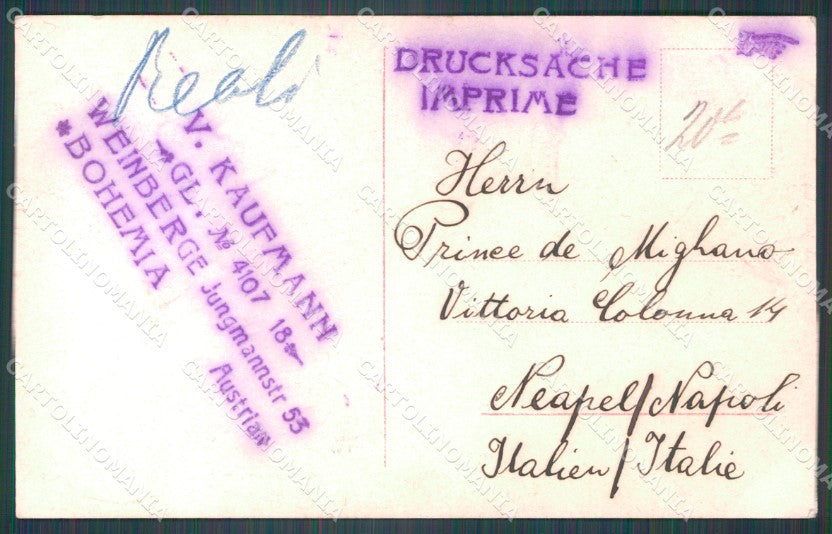 Reali
DRUCKSACHE
IMPRIME
20c
V. KAUFMANN
GL. № 4107 18
WEINBERGE Jungmannstr 53
*BOHEMIA Austria
Herrn
Prince de Mighano
Vittoria Colonna 14
Neapel/Napoli
Italien/Italie
CARTOLINOMANIA